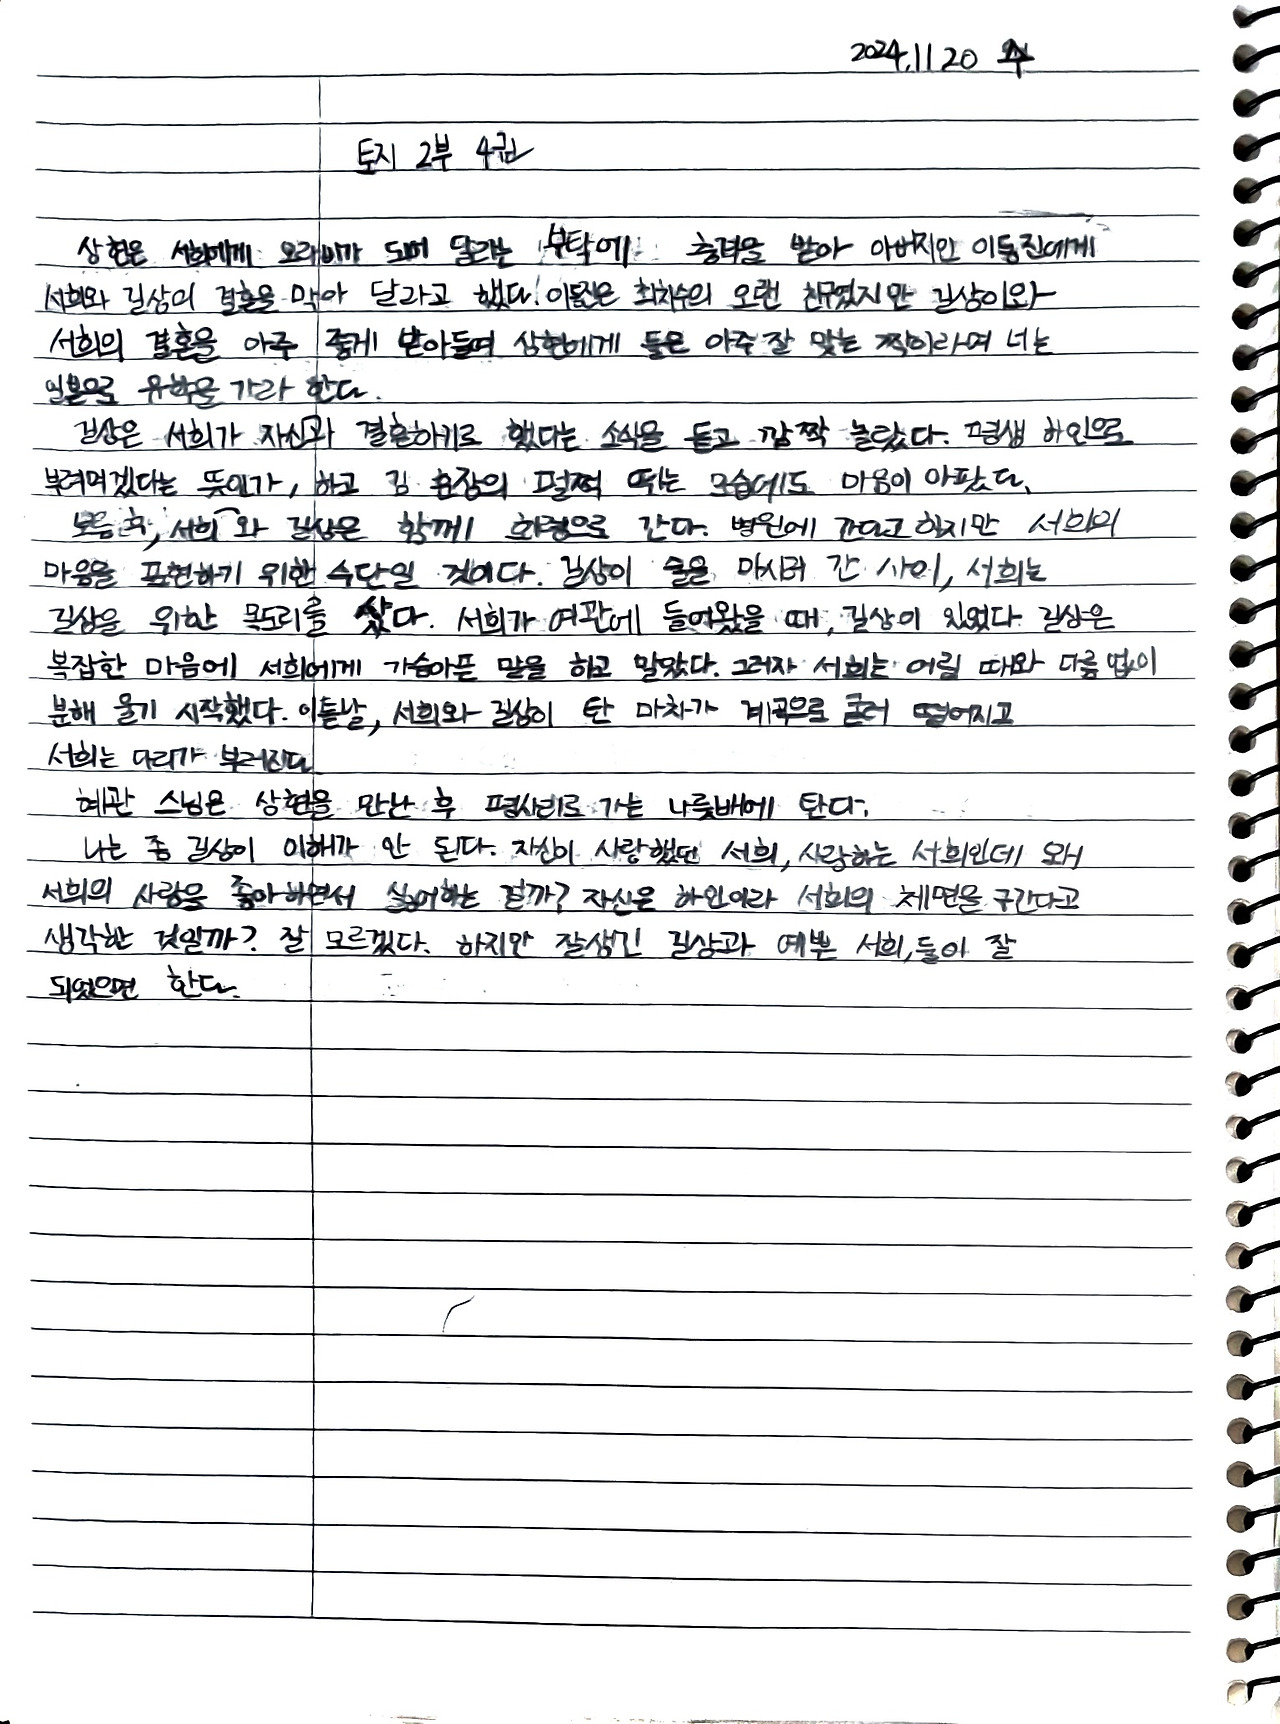 2024.11 20 수
토지 2부 4권
상현은 서희에게 오라비가 되어 달라는 부탁에 충격을 받아 아버지인 이동진에게
서희와 길상의 결혼을 막아 달라고 했다. 이동진은 최치수의 오랜 친구였지만 길상이와
서희의 결혼을 아주 좋게 받아들여 상현에게 둘은 아주 잘 맞는 짝이라며 너는
일본으로 유학을 가라 한다.
길상은 서희가 자신과 결혼하기로 했다는 소식을 듣고 깜짝 놀랐다. 평생 하인으로
부려먹겠다는 뜻인가, 하고 김 훈장의 펄쩍 뛰는 모습에도 마음이 아팠다.
보름 후, 서희와 길상은 함께 회령으로 간다. 병원에 간다고 하지만 서희의
마음을 표현하기 위한 수단일 것이다. 길상이 술을 마시러 간 사이, 서희는
길상을 위한 목도리를 샀다. 서희가 여관에 들어왔을 때, 길상이 있었다 길상은
복잡한 마음에 서희에게 가슴아픈 말을 하고 말았다. 그러자 서희는 어릴 때와 다름 없이
분해 울기 시작했다. 이튿날, 서희와 길상이 탄 마차가 계곡으로 굴러 떨어지고
서희는 다리가 부러진다
혜관 스님은 상현을 만난 후 평사리로 가는 나룻배에 탄다.
나는 좀 길상이 이해가 안 된다. 자신이 사랑했던 서희, 사랑하는 서희인데 왜
서희의 사랑을 좋아하면서 싫어하는 걸까? 자신은 하인이라 서희의 체면을 구긴다고
생각한 것일까? 잘 모르겠다. 하지만 잘생긴 길상과 예쁜 서희, 둘이 잘
되었으면 한다.